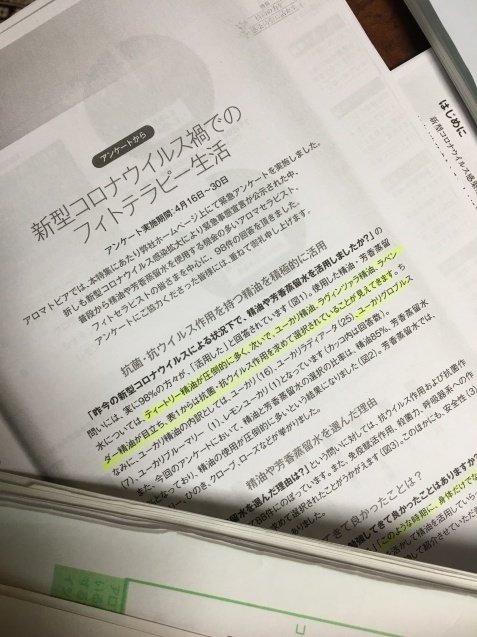 アンケートから
新型コロナウイルス禍での
フィトテラピー生活
アンケート実施期間:4月16日〜30日
アロマトピアでは、本特集にあたり弊社ホームページ上にて緊急アンケートを実施しました。
折しも新型コロナウイルス感染拡大により緊急事態宣言が公示された中、
普段から精油や芳香蒸留水を使用する機会の多いアロマセラピスト、
フィトセラピストの皆さまを中心に、98件の回答を頂きました。
アンケートにご協力くださった皆様には、重ねて御礼申し上げます。
抗菌・抗ウイルス作用を持つ精油を積極的に活用
「昨今の新型コロナウイルスによる状況下で、精油や芳香蒸留水を活用しましたか?」の
問いには、実に98%の方々が、「活用した」と回答されています(図1)。使用した精油・芳香蒸留
水については、ティートリー精油が圧倒的に多く、次いで、ユーカリ精油、ラヴィンツァラ精油、ラベン
ダー精油が目立ち、表1からは抗菌・抗ウイルス作用を求めて選択されていることが見えてきます。ち
なみに、ユーカリ精油の内訳としては、ユーカリ(16)、ユーカリラディアータ(25)、ユーカリグロブルス
(7)、ユーカリブルーマリー(1)、レモンユーカリ(1)となっています(カッコ内は回答者)。
また、今回のアンケートにおいて、精油と芳香蒸留水の選択の比率は、精油85%、芳香蒸留水
となっており、精油の使用が圧倒的に多いという結果になりました(図2)。芳香蒸留水では、
ひのき、クローブ、ローズなどが挙がりました。
精油や芳香蒸留水を選んだ理由
水を選んだ理由は?」という問いに対しては、抗ウイルス作用および抗菌作
て8件にのぼっています。また、免疫賦活作用、殺菌力、呼吸器系への作
求めて選択されたことがうかがえます(図3)。このほかにも、安全性(3)
ありました。
てきて良かったことは?
勉強してきて良かったことはありますか?
「このような時期に、身体だけでな
はじめに
新型コロナウイルス感染